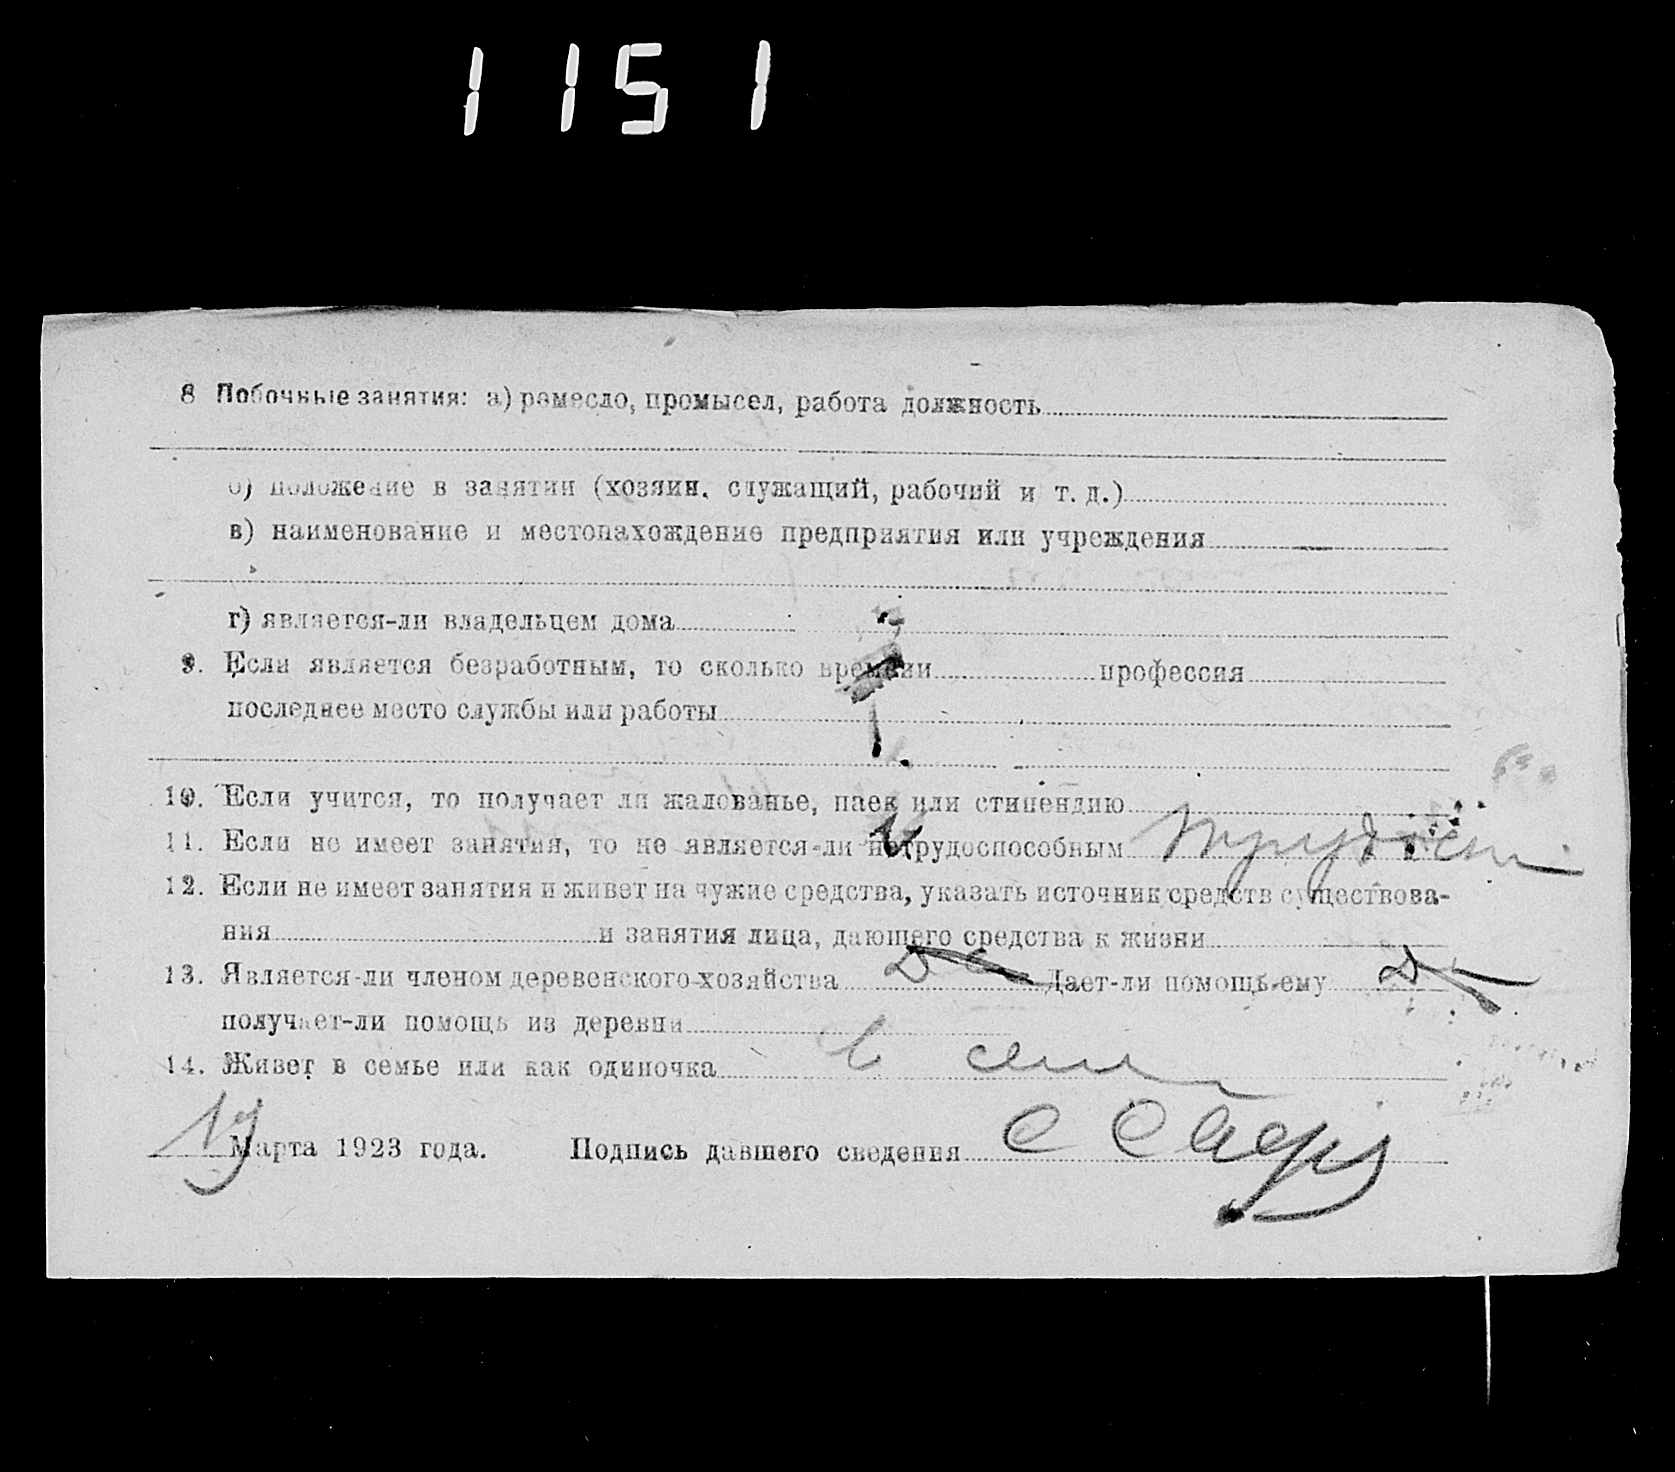 1151
8 Побочные занятия: а) ремесло, промысел, работа должность
б) положение в занятии (хозяин, служащий, рабочий и т. д.)
в) наименование и местонахождение предприятия или учреждения
г) является-ли владельцем дома
9. Если является безработным, то сколько времени профессия
последнее место службы или работы
10. Если учится, то получает ли жалованье, паек или стипендию
11. Если не имеет занятия, то не является-ли нетрудоспособным
12. Если не имеет занятия и живет на чужие средства, указать источник средств существова-
ния и занятия лица, дающего средства к жизни
13. Является-ли членом деревенского хозяйства Дает-ли помощь ему
получает-ли помощь из деревни
14. Живет в семье или как одиночка в семи
19 Марта 1923 года. Подпись давшего сведения